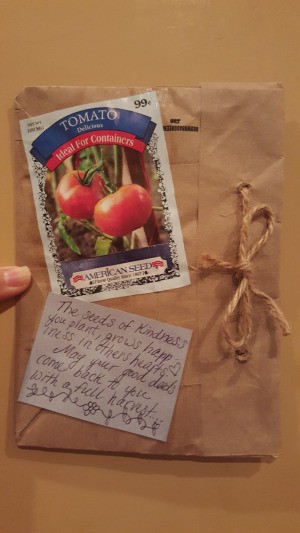 99¢
TOMATO
Delicious
Ideal For Containers
AMERICAN SEED
The seeds of Kindness
you plant, grows happ-
iness in others hearts
May your good deeds
come back to you
with a full harvest.